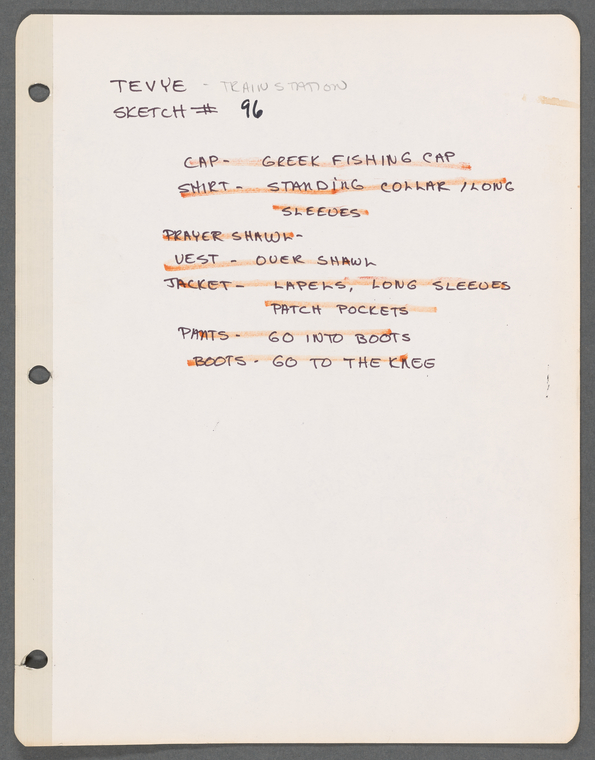 TEVYE - TRAINSTATION
SKETCH # 96
CAP- GREEK FISHING CAP
SHIRT - STANDING COLLAR / LONG
SLEEVES
PRAYER SHAWL-
VEST - OVER SHAWL
JACKET- LAPELS, LONG SLEEVES
PATCH POCKETS
PANTS- GO INTO BOOTS
BOOTS- GO TO THE KNEE